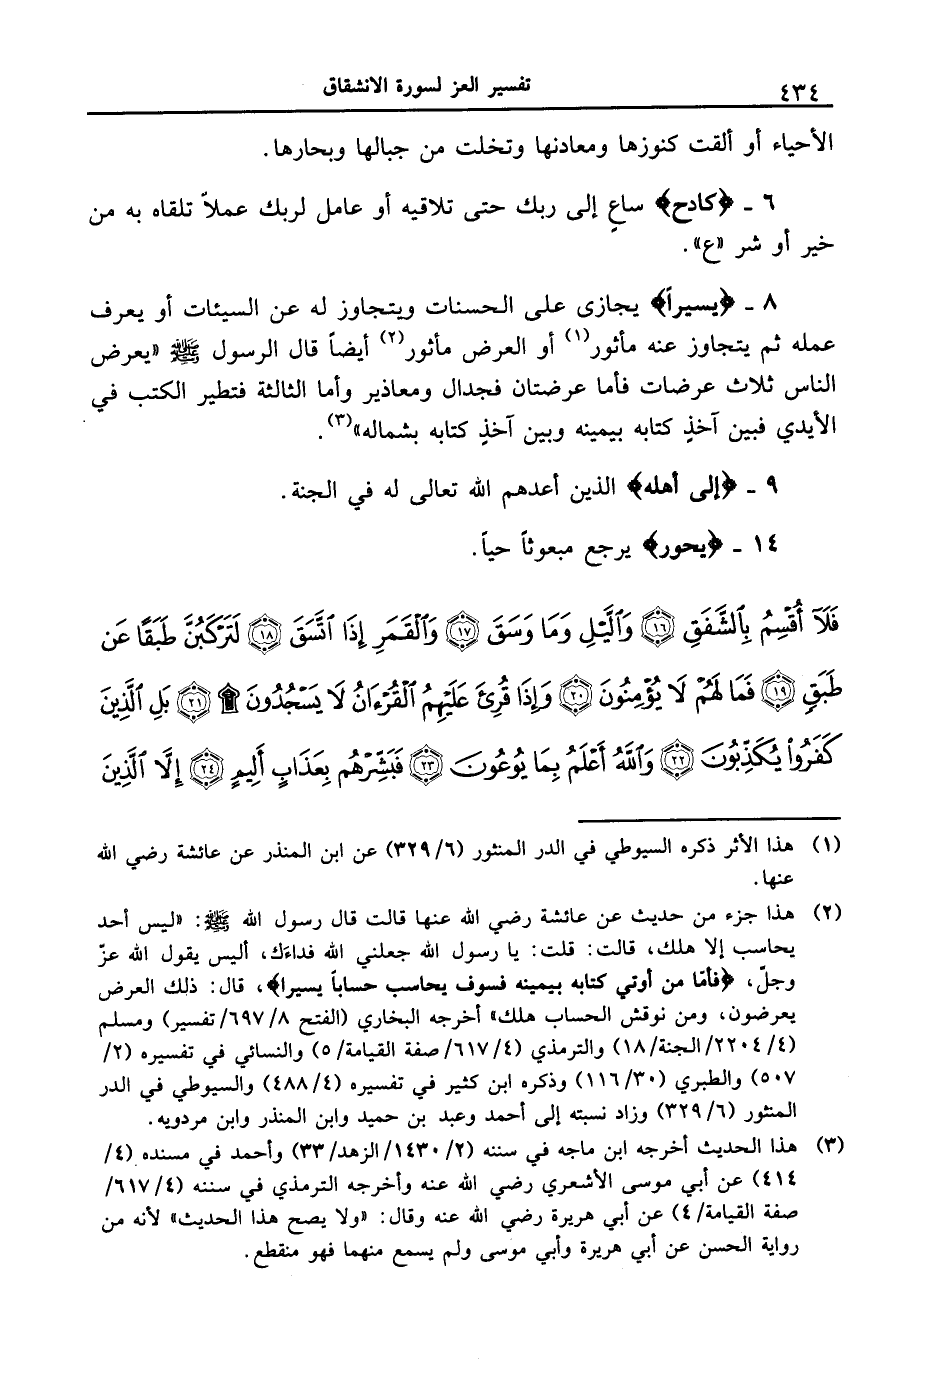 ٤٣٤
تفسير العز لسورة الانشقاق
الأحياء أو ألقت كنوزها ومعادنها وتخلت من جبالها وبحارها.
٦ ـ ﴿كادح﴾ ساعٍ إلى ربك حتى تلاقيه أو عامل لربك عملاً تلقاه به من
خير أو شر «ع».
٨ ـ ﴿يسيراً﴾ يجازى على الحسنات ويتجاوز له عن السيئات أو يعرف
عمله ثم يتجاوز عنه مأثور(١) أو العرض مأثور(٢) أيضاً قال الرسول ﷺ «يعرض
الناس ثلاث عرضات فأما عرضتان فجدال ومعاذير وأما الثالثة فتطير الكتب في
الأيدي فبين آخذٍ كتابه بيمينه وبين آخذٍ كتابه بشماله»(٣).
٩ ـ ﴿إلى أهله﴾ الذين أعدهم الله تعالى له في الجنة.
١٤ ـ ﴿يحور﴾ يرجع مبعوثاً حياً.
فَلَآ أُقْسِمُ بِٱلشَّفَقِ ۝١٦ وَٱلَّيْلِ وَمَا وَسَقَ ۝١٧ وَٱلْقَمَرِ إِذَا ٱتَّسَقَ ۝١٨ لَتَرْكَبُنَّ طَبَقًا عَن
طَبَقٍ ۝١٩ فَمَا لَهُمْ لَا يُؤْمِنُونَ ۝٢٠ وَإِذَا قُرِئَ عَلَيْهِمُ ٱلْقُرْءَانُ لَا يَسْجُدُونَ ۩ ۝٢١ بَلِ ٱلَّذِينَ
كَفَرُواْ يُكَذِّبُونَ ۝٢٢ وَٱللَّهُ أَعْلَمُ بِمَا يُوعُونَ ۝٢٣ فَبَشِّرْهُم بِعَذَابٍ أَلِيمٍ ۝٢٤ إِلَّا ٱلَّذِينَ
(١) هذا الأثر ذكره السيوطي في الدر المنثور (٣٢٩/٦) عن ابن المنذر عن عائشة رضي الله
عنها.
(٢) هذا جزء من حديث عن عائشة رضي الله عنها قالت قال رسول الله ﷺ: «ليس أحد
يحاسب إلا هلك، قالت: قلت: يا رسول الله جعلني الله فداءك، أليس يقول الله عزّ
وجلّ، ﴿فأمّا من أوتي كتابه بيمينه فسوف يحاسب حساباً يسيرا﴾، قال: ذلك العرض
يعرضون، ومن نوقش الحساب هلك» أخرجه البخاري (الفتح ٦٩٧/٨/تفسير) ومسلم
(٢٢٠٤/٤/الجنة/١٨) والترمذي (٦١٧/٤/صفة القيامة/٥) والنسائي في تفسيره (٢/
٥٠٧) والطبري (١١٦/٣٠) وذكره ابن كثير في تفسيره (٤٨٨/٤) والسيوطي في الدر
المنثور (٣٢٩/٦) وزاد نسبته إلى أحمد وعبد بن حميد وابن المنذر وابن مردويه.
(٣) هذا الحديث أخرجه ابن ماجه في سننه (١٤٣٠/٢/الزهد/٣٣) وأحمد في مسنده (٤/
٤١٤) عن أبي موسى الأشعري رضي الله عنه وأخرجه الترمذي في سننه (٦١٧/٤/
صفة القيامة/٤) عن أبي هريرة رضي الله عنه وقال: «ولا يصح هذا الحديث» لأنه من
رواية الحسن عن أبي هريرة وأبي موسى ولم يسمع منهما فهو منقطع.